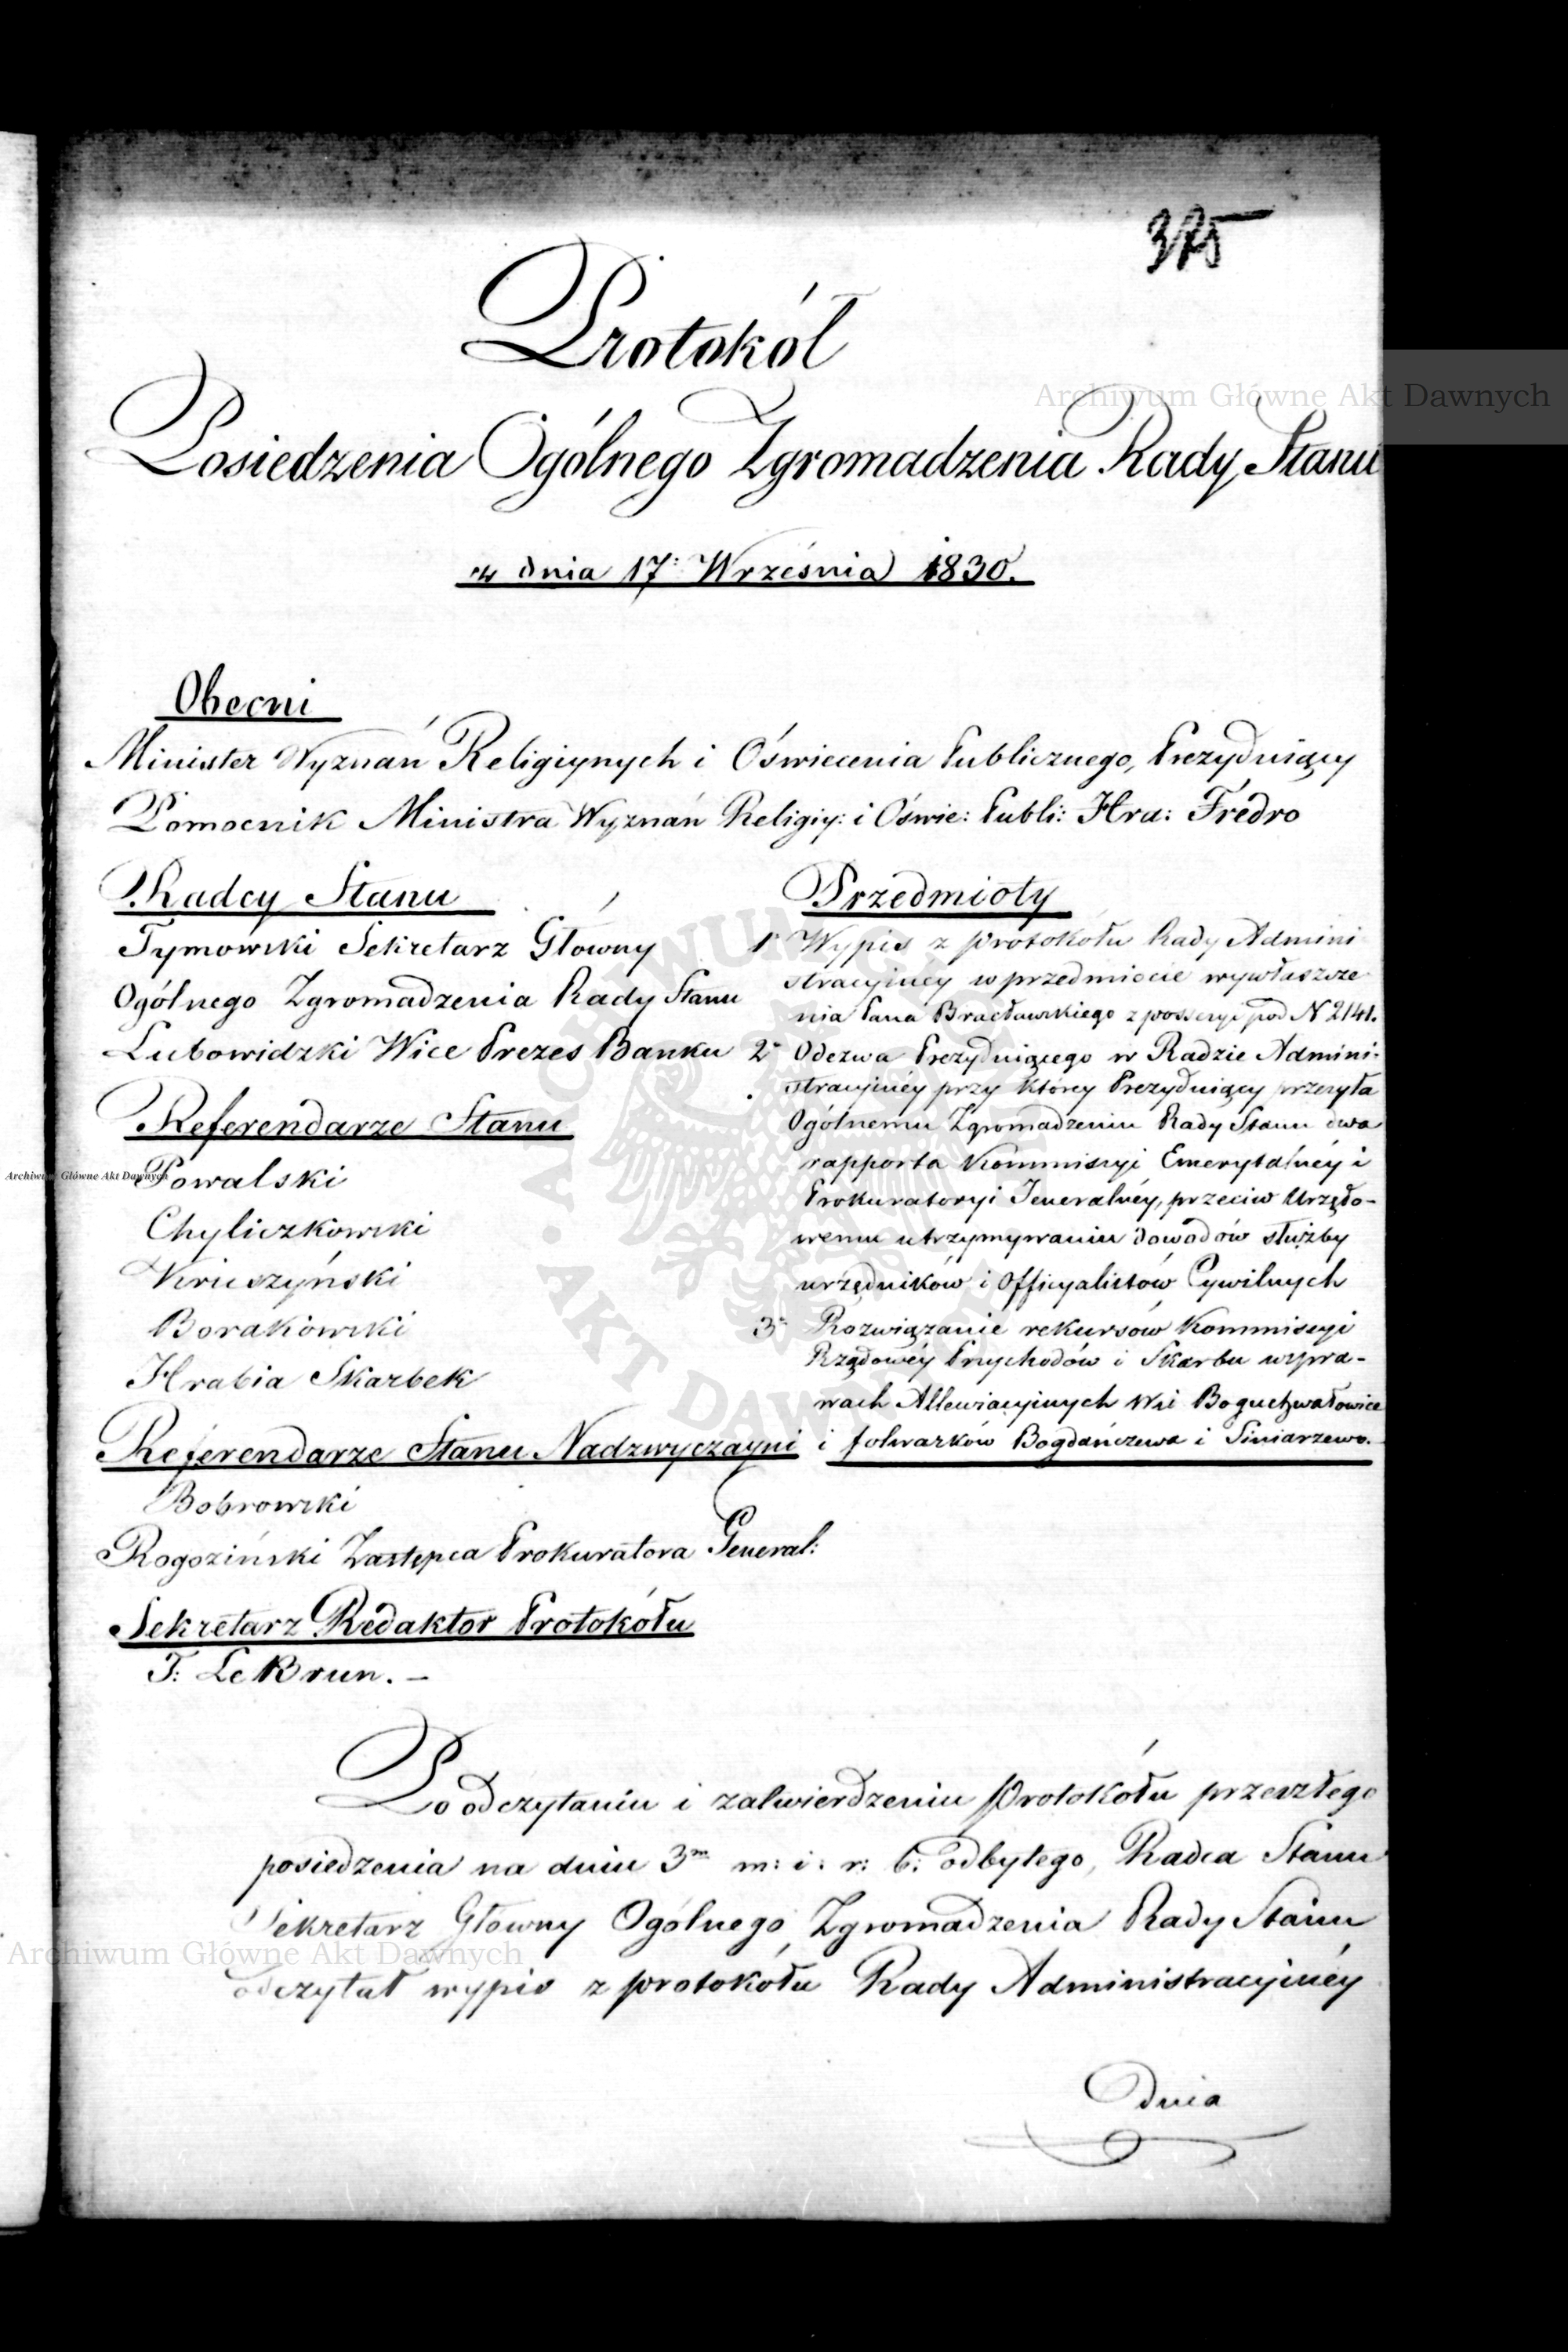 375
Protokół
Posiedzenia Ogólnego Zgromadzenia Rady Stanu
w dnia 17: Września 1830.
Obecni
Minister Wyznań Religiynych i Oświecenia Publicznego, Prezyduiący
Pomocnik Ministra Wyznań Religiy: i Oświe: Publi: Hra: Fredro
Radcy Stanu
Tymowski Sekretarz Główny
Ogólnego Zgromadzenia Rady Stanu
Lubowidzki Wice Prezes Banku
Referendarze Stanu
Powalski
Chyliczkowski
Kruszyński
Borakowski
Hrabia Skarbek
Referendarze Stanu Nadzwyczayni
Bobrowski
Rogoziński Zastępca Prokuratora General:
Sekretarz Redaktor Protokółu
T: Le Brun. –
Przedmioty
1° Wypis z protokółu Rady Admini
stracyjney w przedmiocie wywłaszcze
nia Pana Bracławskiego z possesyi pod N 2141.
2° Odezwa Prezyduiącego w Radzie Admini-
stracyjnéy przy którey Prezyduiący przesyła
Ogólnemu Zgromadzeniu Rady Stanu dwa
rapporta Kommissyi Emerytalnéy i
Prokuratoryi Jeneralnéy, przeciw Urzędo-
wemu utrzymywaniu dowodów służby
urzędników i Officyalistów Cywilnych
3° Rozwiązanie rekursów Kommissyi
Rządowéy Przychodów i Skarbu w spra-
wach Allewiacyjnych Wsi Boguchwałowice
i folwarków Bogdańczewa i Siniarzewo.
Po odczytaniu i zatwierdzeniu Protokółu przeszłego
posiedzenia na dniu 3m m: i: r: b: odbytego, Radca Stanu
Sekretarz Główny Ogólnego Zgromadzenia Rady Stanu
odczytał wypis z protokółu Rady Administracyjnéy
dnia
Archiwum Główne Akt Dawnych
Archiwum Główne Akt Dawnych
Archiwum Główne Akt Dawnych